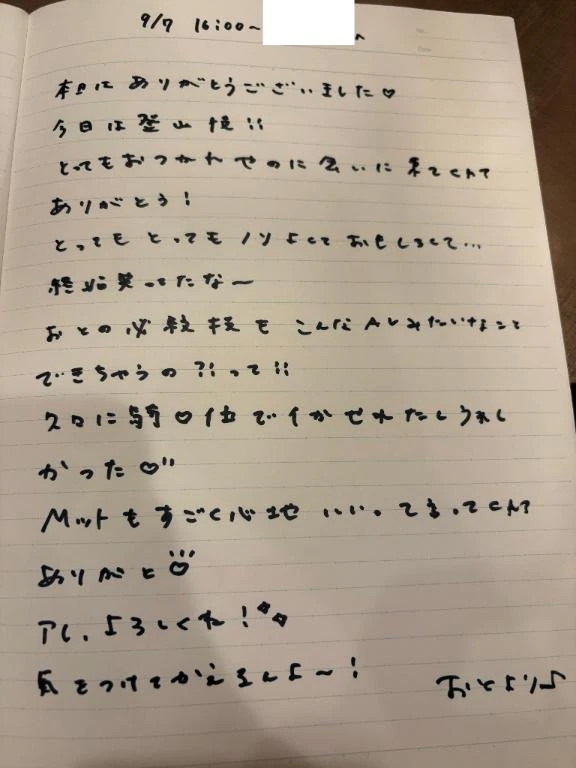 9/7 16:00~
本日はありがとうございました♡
今日は登山後!!
とってもおつかれせのに会いに来てくれて
ありがとう!
とってもとってもノリよくておもしろくて...
終始笑ってたな〜
おとの必殺技もこんなAVみたいなこと
できちゃうの?!って!!
久々に騎♡位でイかせれたしうれし
かった♡"
Mットもすごく心地いい。って言ってくれて
ありがと♡
アし、よろしくね!
気をつけてかえるんよ〜!
おとより♪